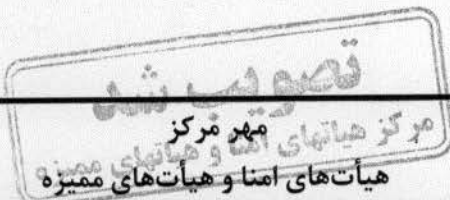 تصویب شد
مرکز هیاتهای امنا و هیاتهای ممیزه
مهر مرکز
هیأت‌های امنا و هیأت‌های ممیزه